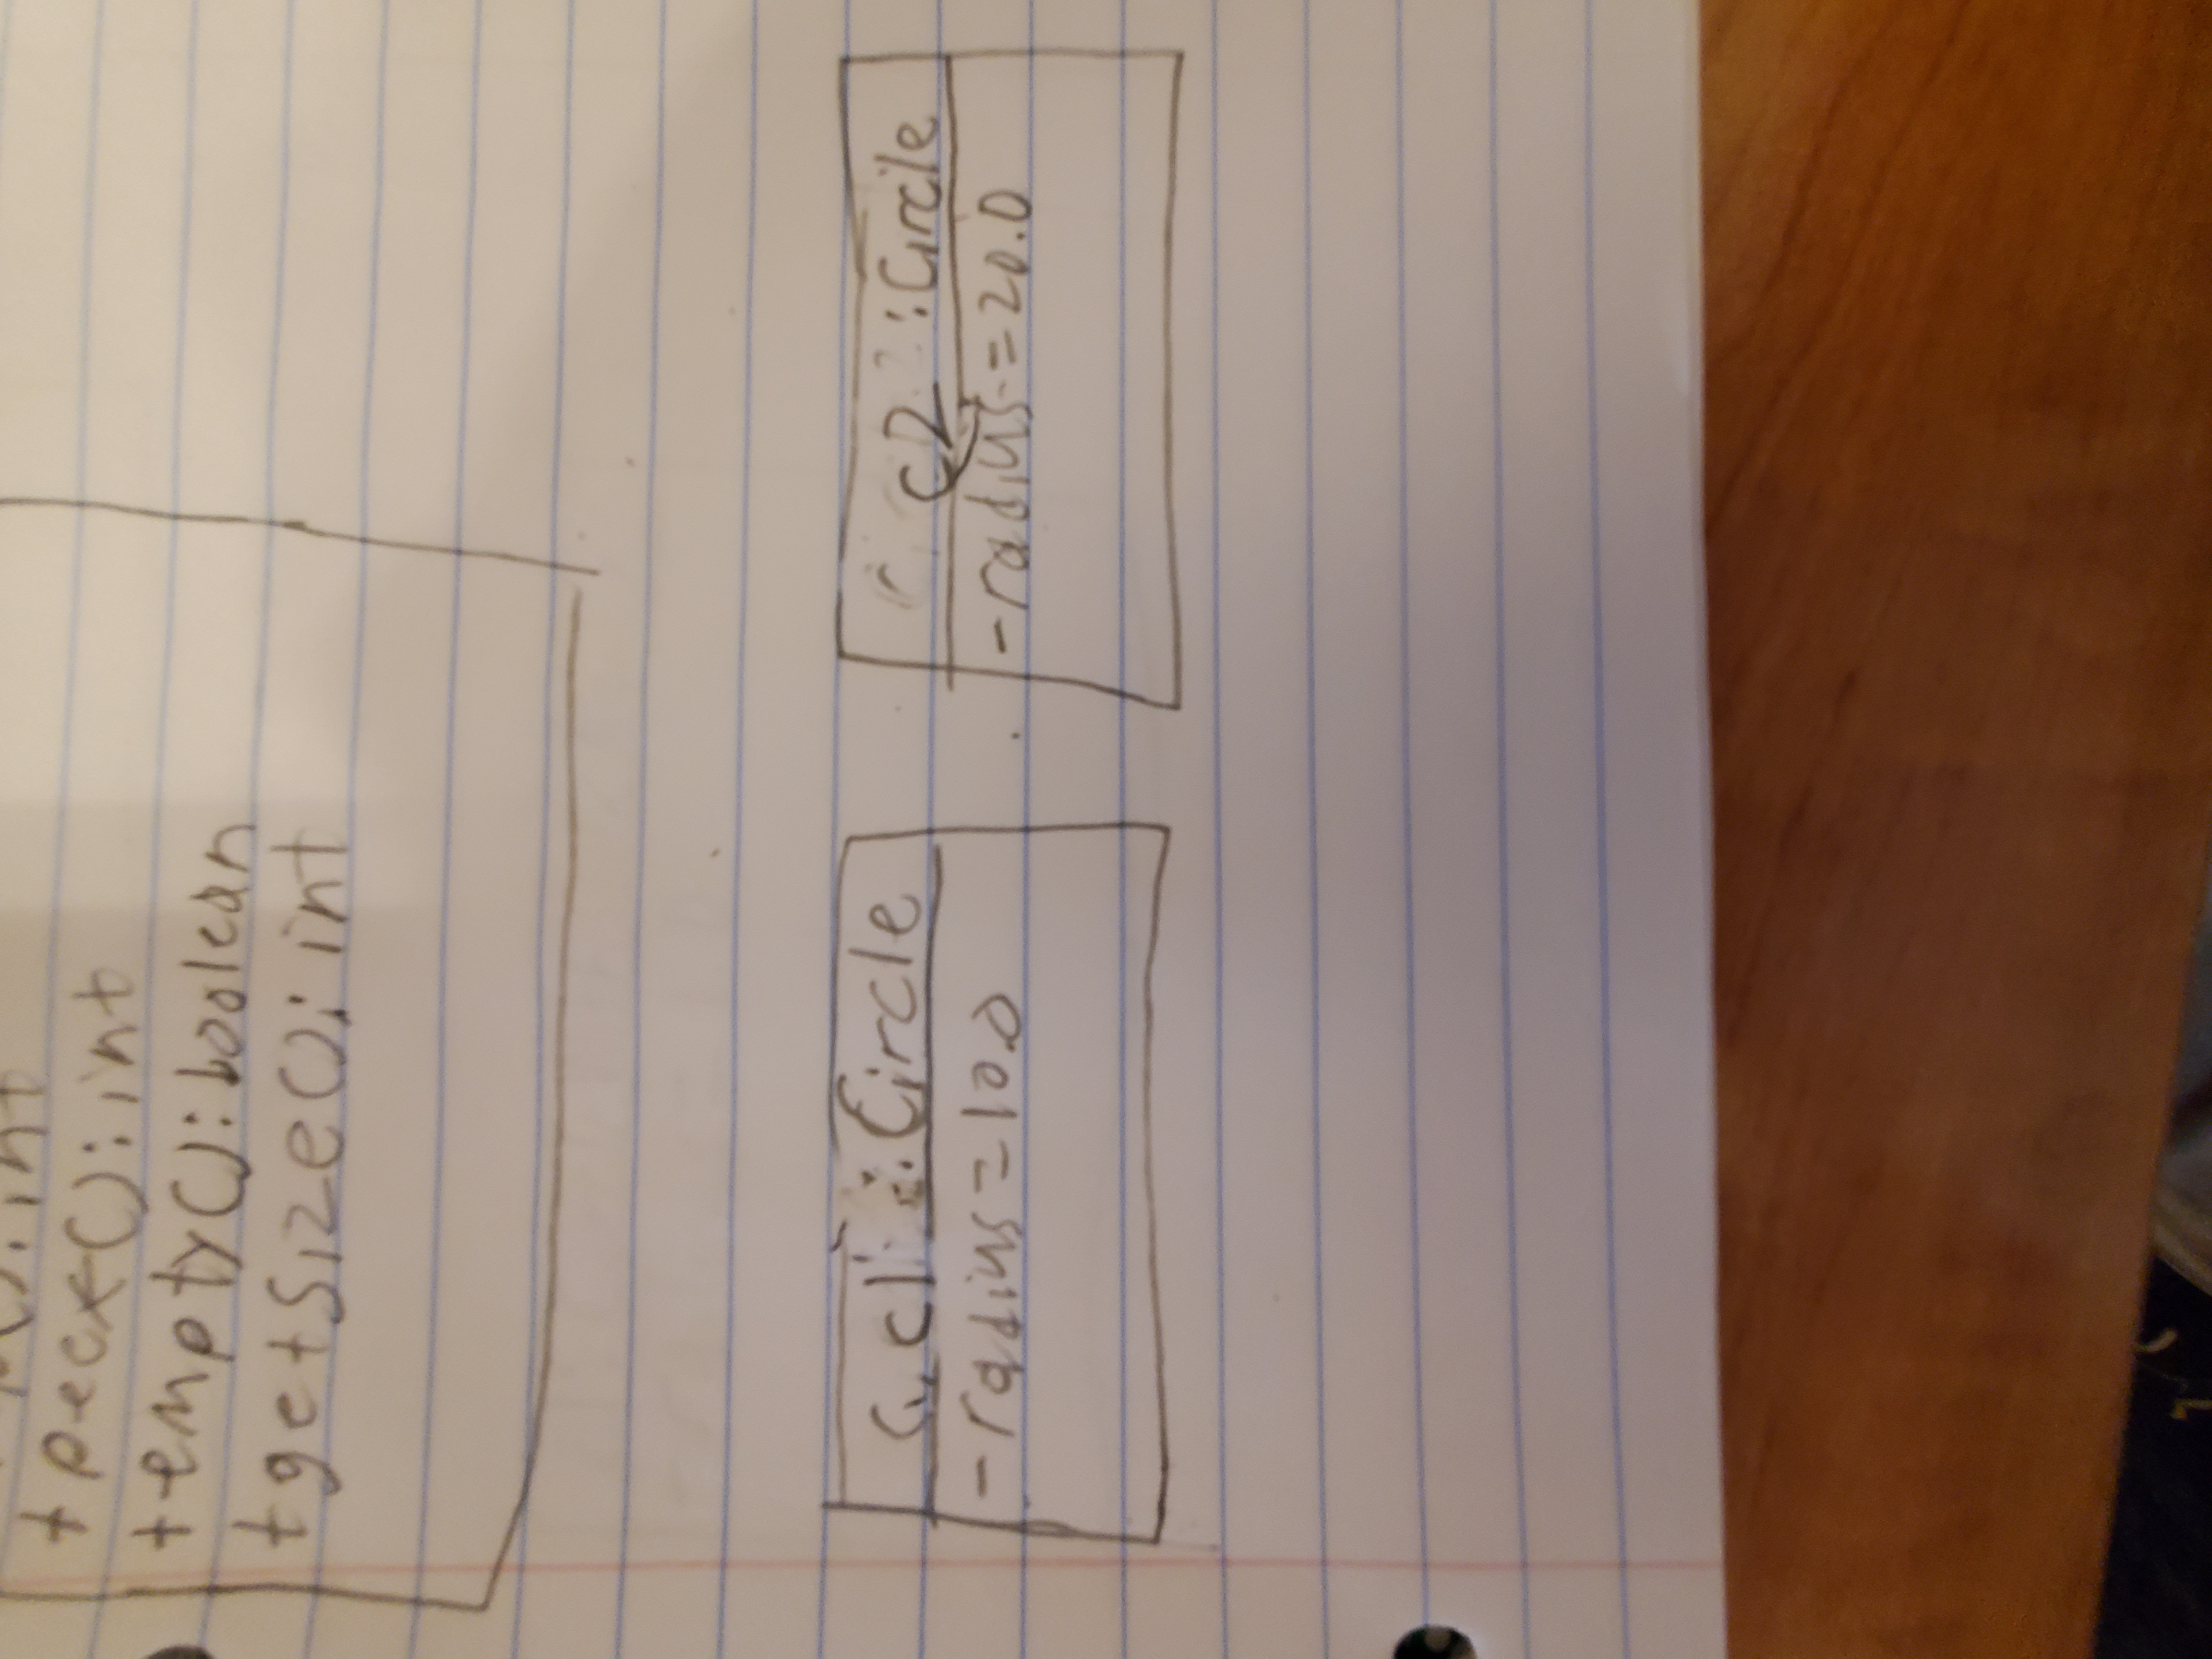 : int
+ peek(): int
+ empty(): boolean
+ getSize(): int
c1 : Circle
- radius = 10.0
c2 : Circle
- radius = 20.0